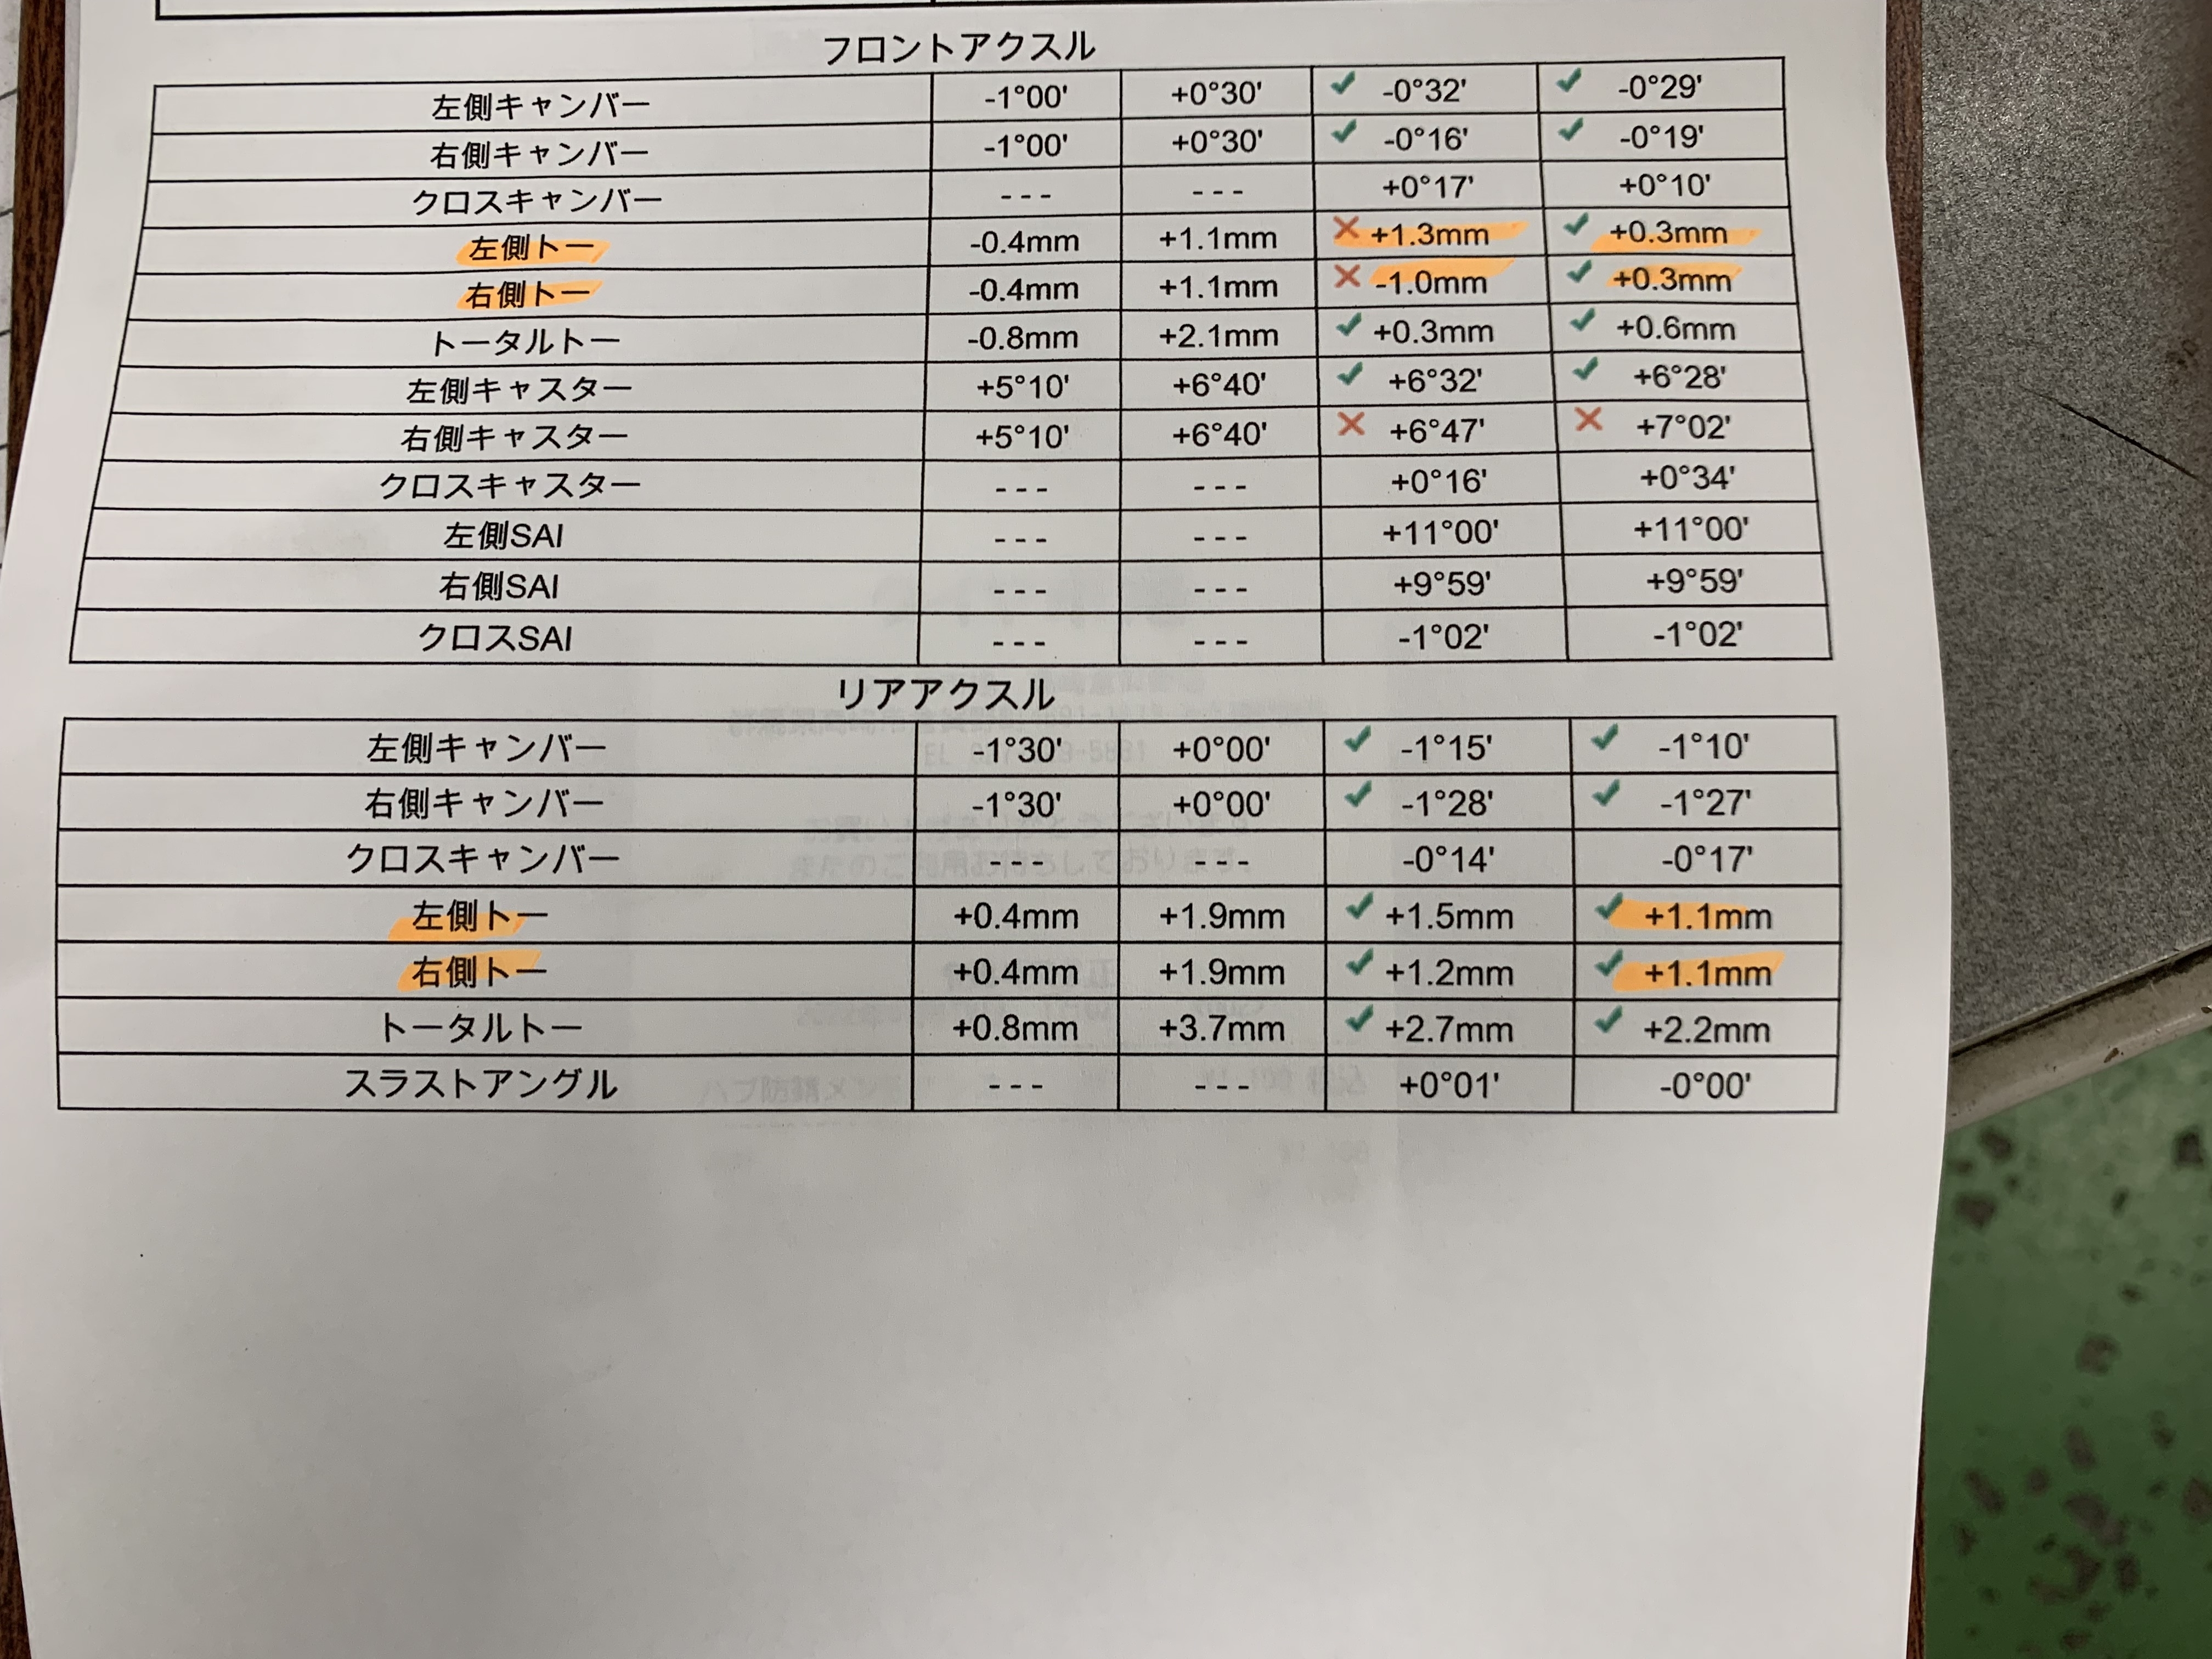 フロントアクスル
左側キャンバー -1°00' +0°30' ✓ -0°32' ✓ -0°29'
右側キャンバー -1°00' +0°30' ✓ -0°16' ✓ -0°19'
クロスキャンバー --- --- +0°17' +0°10'
左側トー -0.4mm +1.1mm ✕ +1.3mm ✓ +0.3mm
右側トー -0.4mm +1.1mm ✕ -1.0mm ✓ +0.3mm
トータルトー -0.8mm +2.1mm ✓ +0.3mm ✓ +0.6mm
左側キャスター +5°10' +6°40' ✓ +6°32' ✓ +6°28'
右側キャスター +5°10' +6°40' ✕ +6°47' ✕ +7°02'
クロスキャスター --- --- +0°16' +0°34'
左側SAI --- --- +11°00' +11°00'
右側SAI --- --- +9°59' +9°59'
クロスSAI --- --- -1°02' -1°02'
リアアクスル
左側キャンバー -1°30' +0°00' ✓ -1°15' ✓ -1°10'
右側キャンバー -1°30' +0°00' ✓ -1°28' ✓ -1°27'
クロスキャンバー --- --- -0°14' -0°17'
左側トー +0.4mm +1.9mm ✓ +1.5mm ✓ +1.1mm
右側トー +0.4mm +1.9mm ✓ +1.2mm ✓ +1.1mm
トータルトー +0.8mm +3.7mm ✓ +2.7mm ✓ +2.2mm
スラストアングル --- --- +0°01' -0°00'